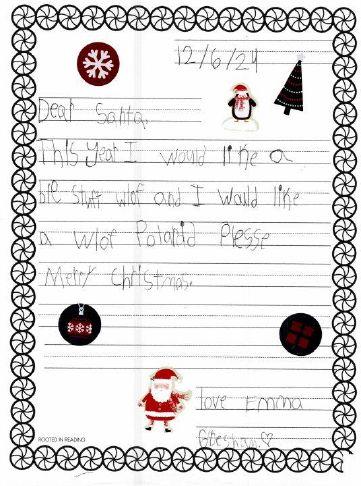 12/6/24
Dear Santa,
This year I would like a
big stuff wlof and I would like
a wlof Polaroid Plesse
Merry Christmas.
love Emma
ROOTED IN READING